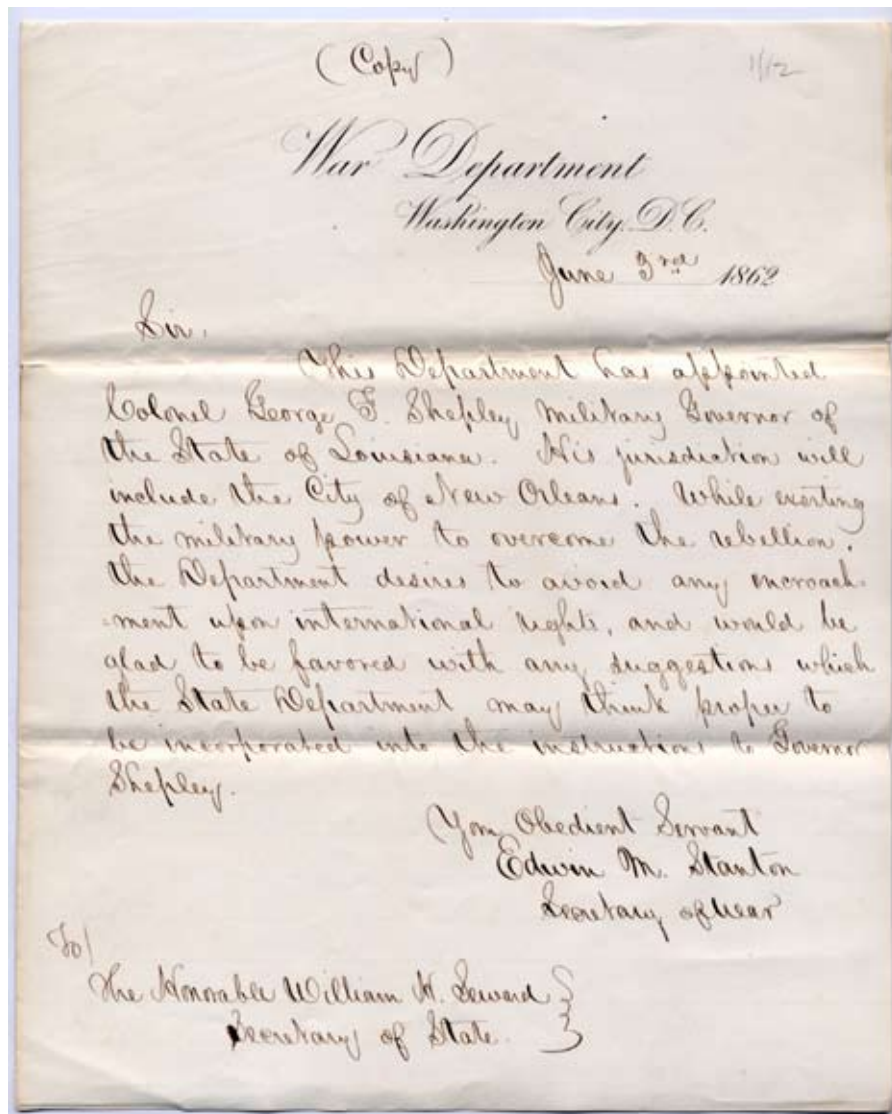 (Copy)
1/12
War Department
Washington City, D.C.
June 3rd 1862
Sir.
This Department has appointed
Colonel George F. Shepley Military Governor of
the State of Louisiana. His jurisdiction will
include the City of New Orleans. While exerting
the military power to overcome the rebellion,
the Department desires to avoid any encroach-
-ment upon international rights, and would be
glad to be favored with any suggestions which
the State Department may think proper to
be incorporated into the instructions to Governor
Shepley.
Your Obedient Servant
Edwin M. Stanton
Secretary of War
To/
The Honorable William H. Seward
Secretary of State.